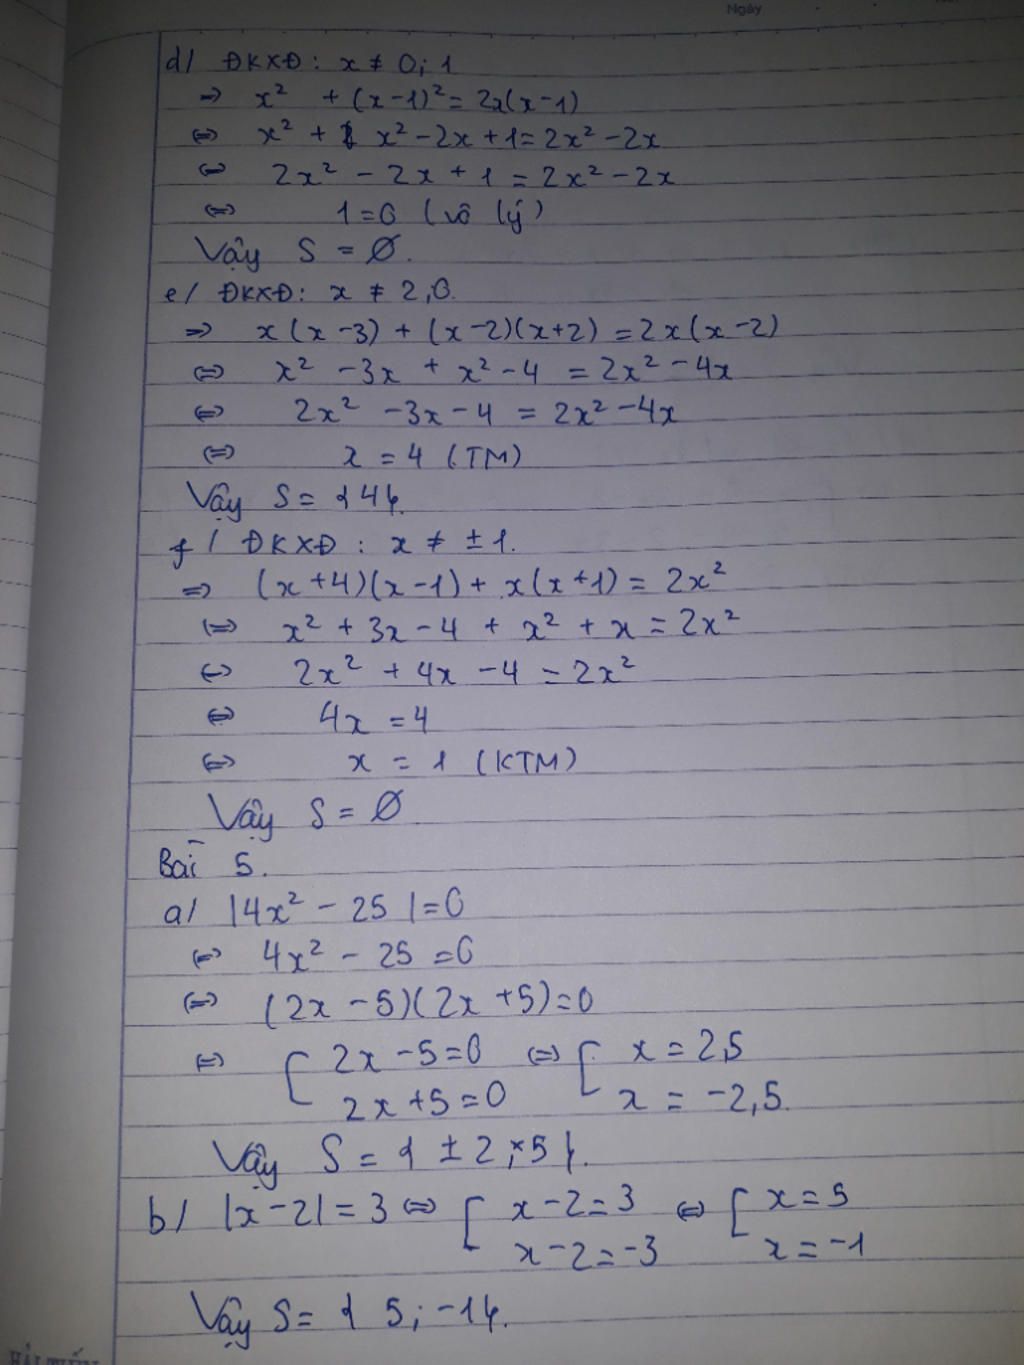 Ngày
d/ ĐKXĐ: x ≠ 0; 1
=> x² + (x-1)² = 2x(x-1)
<=> x² + x² - 2x + 1 = 2x² - 2x
<=> 2x² - 2x + 1 = 2x² - 2x
<=> 1 = 0 (vô lý)
Vậy S = Ø.
e/ ĐKXĐ: x ≠ 2, 0.
=> x(x-3) + (x-2)(x+2) = 2x(x-2)
<=> x² - 3x + x² - 4 = 2x² - 4x
<=> 2x² - 3x - 4 = 2x² - 4x
<=> x = 4 (TM)
Vậy S = {4}.
f/ ĐKXĐ: x ≠ ±1.
=> (x+4)(x-1) + x(x+1) = 2x²
<=> x² + 3x - 4 + x² + x = 2x²
<=> 2x² + 4x - 4 = 2x²
<=> 4x = 4
<=> x = 1 (KTM)
Vậy S = Ø
Bài 5.
a/ |4x² - 25| = 0
<=> 4x² - 25 = 0
<=> (2x-5)(2x+5) = 0
<=> [ 2x-5=0 <=> [ x = 2,5
2x+5=0 x = -2,5.
Vậy S = { ±2,5 }.
b/ |x-2| = 3 <=> [ x-2=3 <=> [ x=5
x-2=-3 x=-1
Vậy S = { 5; -1}.